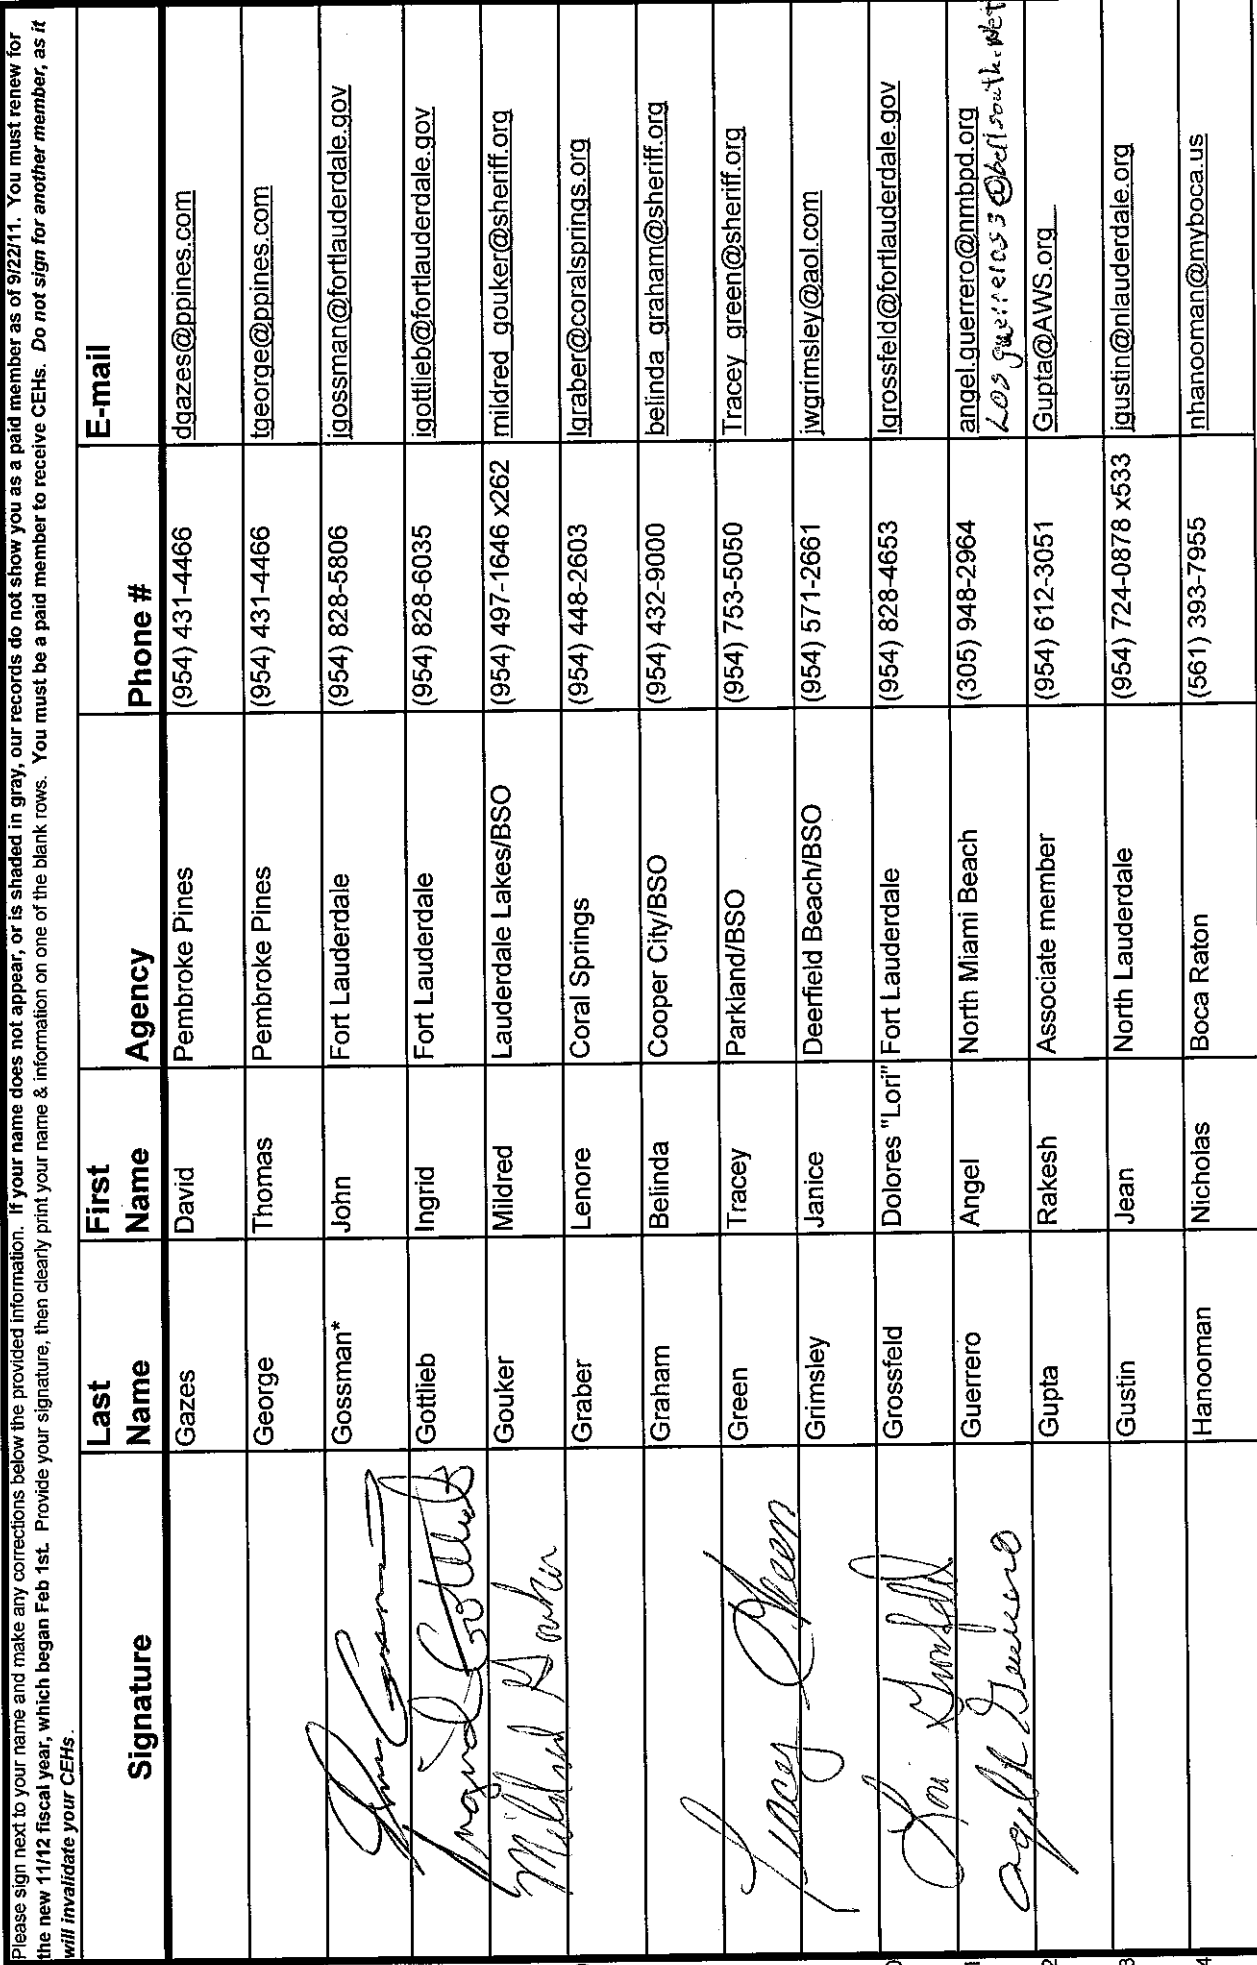 Please sign next to your name and make any corrections below the provided information. If your name does not appear, or is shaded in gray, our records do not show you as a paid member as of 9/22/11. You must renew for
the new 11/12 fiscal year, which began Feb 1st. Provide your signature, then clearly print your name & information on one of the blank rows. You must be a paid member to receive CEHs. Do not sign for another member, as it
will invalidate your CEHs.
Signature Last Name First Name Agency Phone # E-mail
Gazes David Pembroke Pines (954) 431-4466 dgazes@ppines.com
George Thomas Pembroke Pines (954) 431-4466 tgeorge@ppines.com
Gossman* John Fort Lauderdale (954) 828-5806 jgossman@fortlauderdale.gov
Ingrid Gottlieb Gottlieb Ingrid Fort Lauderdale (954) 828-6035 igottlieb@fortlauderdale.gov
Mildred Gouker Gouker Mildred Lauderdale Lakes/BSO (954) 497-1646 x262 mildred_gouker@sheriff.org
Graber Lenore Coral Springs (954) 448-2603 lgraber@coralsprings.org
Graham Belinda Cooper City/BSO (954) 432-9000 belinda_graham@sheriff.org
Tracey Green Green Tracey Parkland/BSO (954) 753-5050 Tracey_green@sheriff.org
Grimsley Janice Deerfield Beach/BSO (954) 571-2661 jwgrimsley@aol.com
Lori Grossfeld Grossfeld Dolores "Lori" Fort Lauderdale (954) 828-4653 lgrossfeld@fortlauderdale.gov
Angel Guerrero Guerrero Angel North Miami Beach (305) 948-2964 angel.guerrero@nmbpd.org
Losguerreros3@bellsouth.net
2 Gupta Rakesh Associate member (954) 612-3051 Gupta@AWS.org
3 Gustin Jean North Lauderdale (954) 724-0878 x533 jgustin@nlauderdale.org
4 Hanooman Nicholas Boca Raton (561) 393-7955 nhanooman@myboca.us